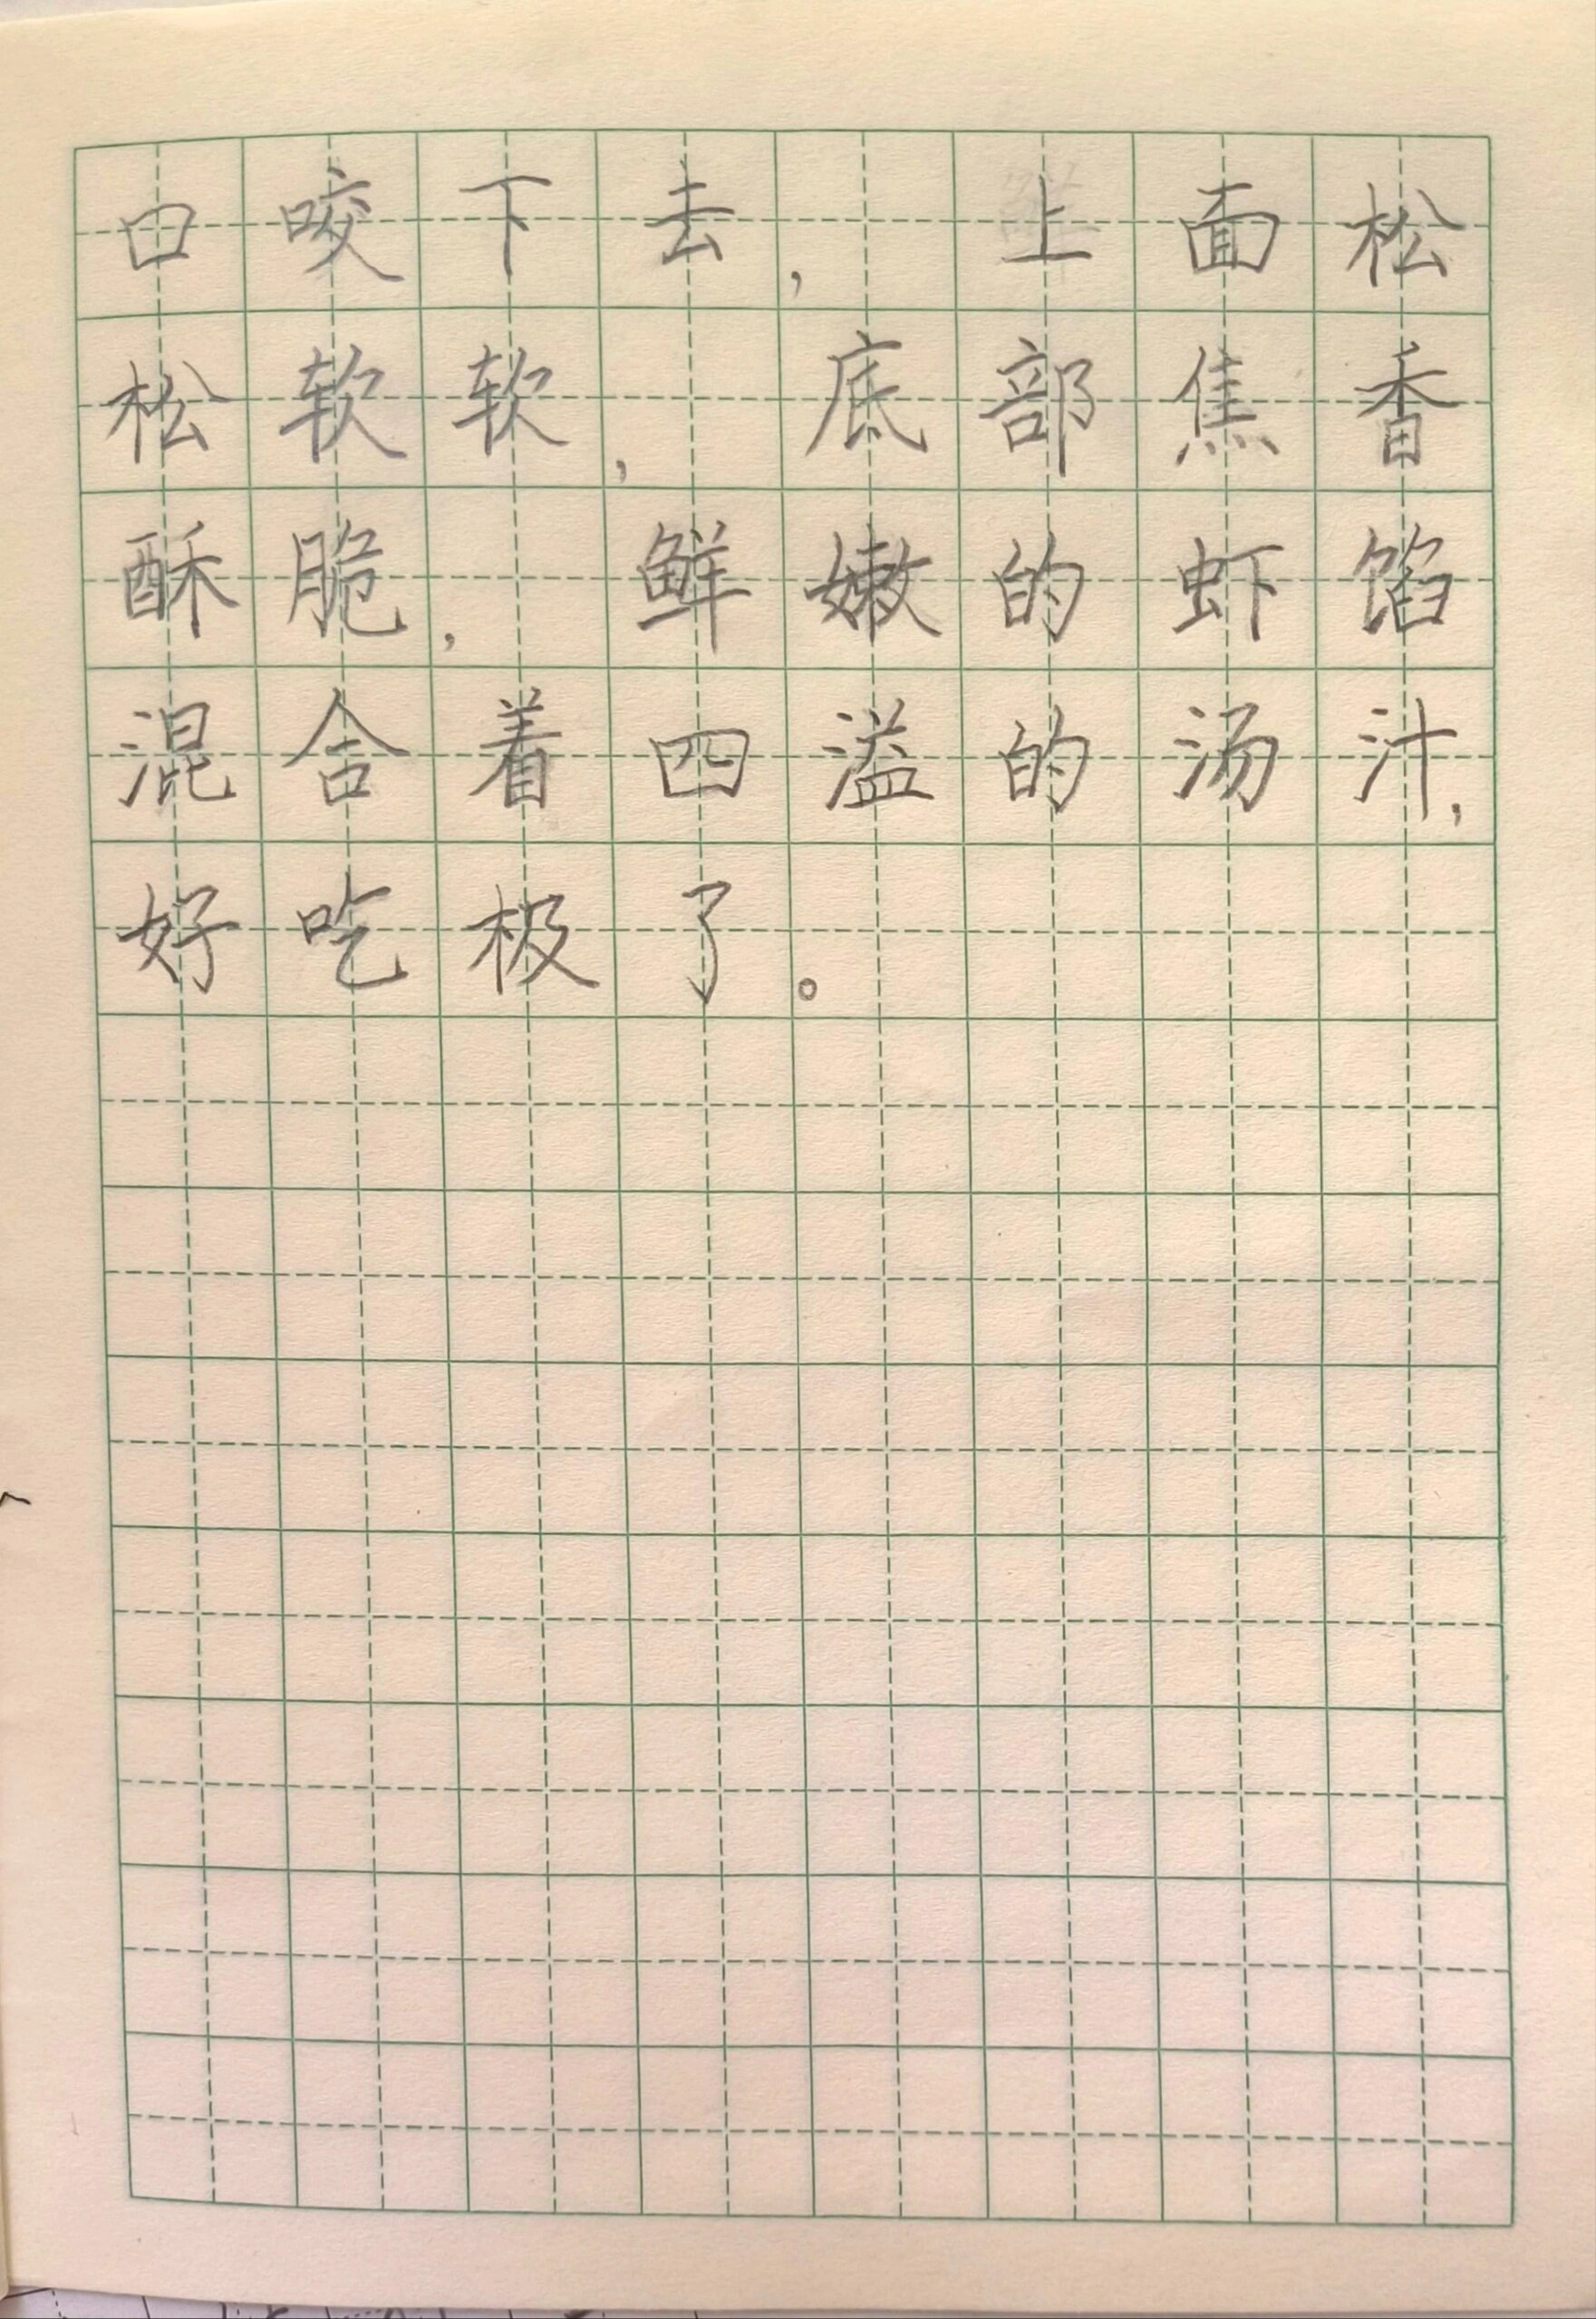 口咬下去，上面松
松软软，底部焦香
酥脆，鲜嫩的虾馅
混合着四溢的汤汁，
好吃极了。